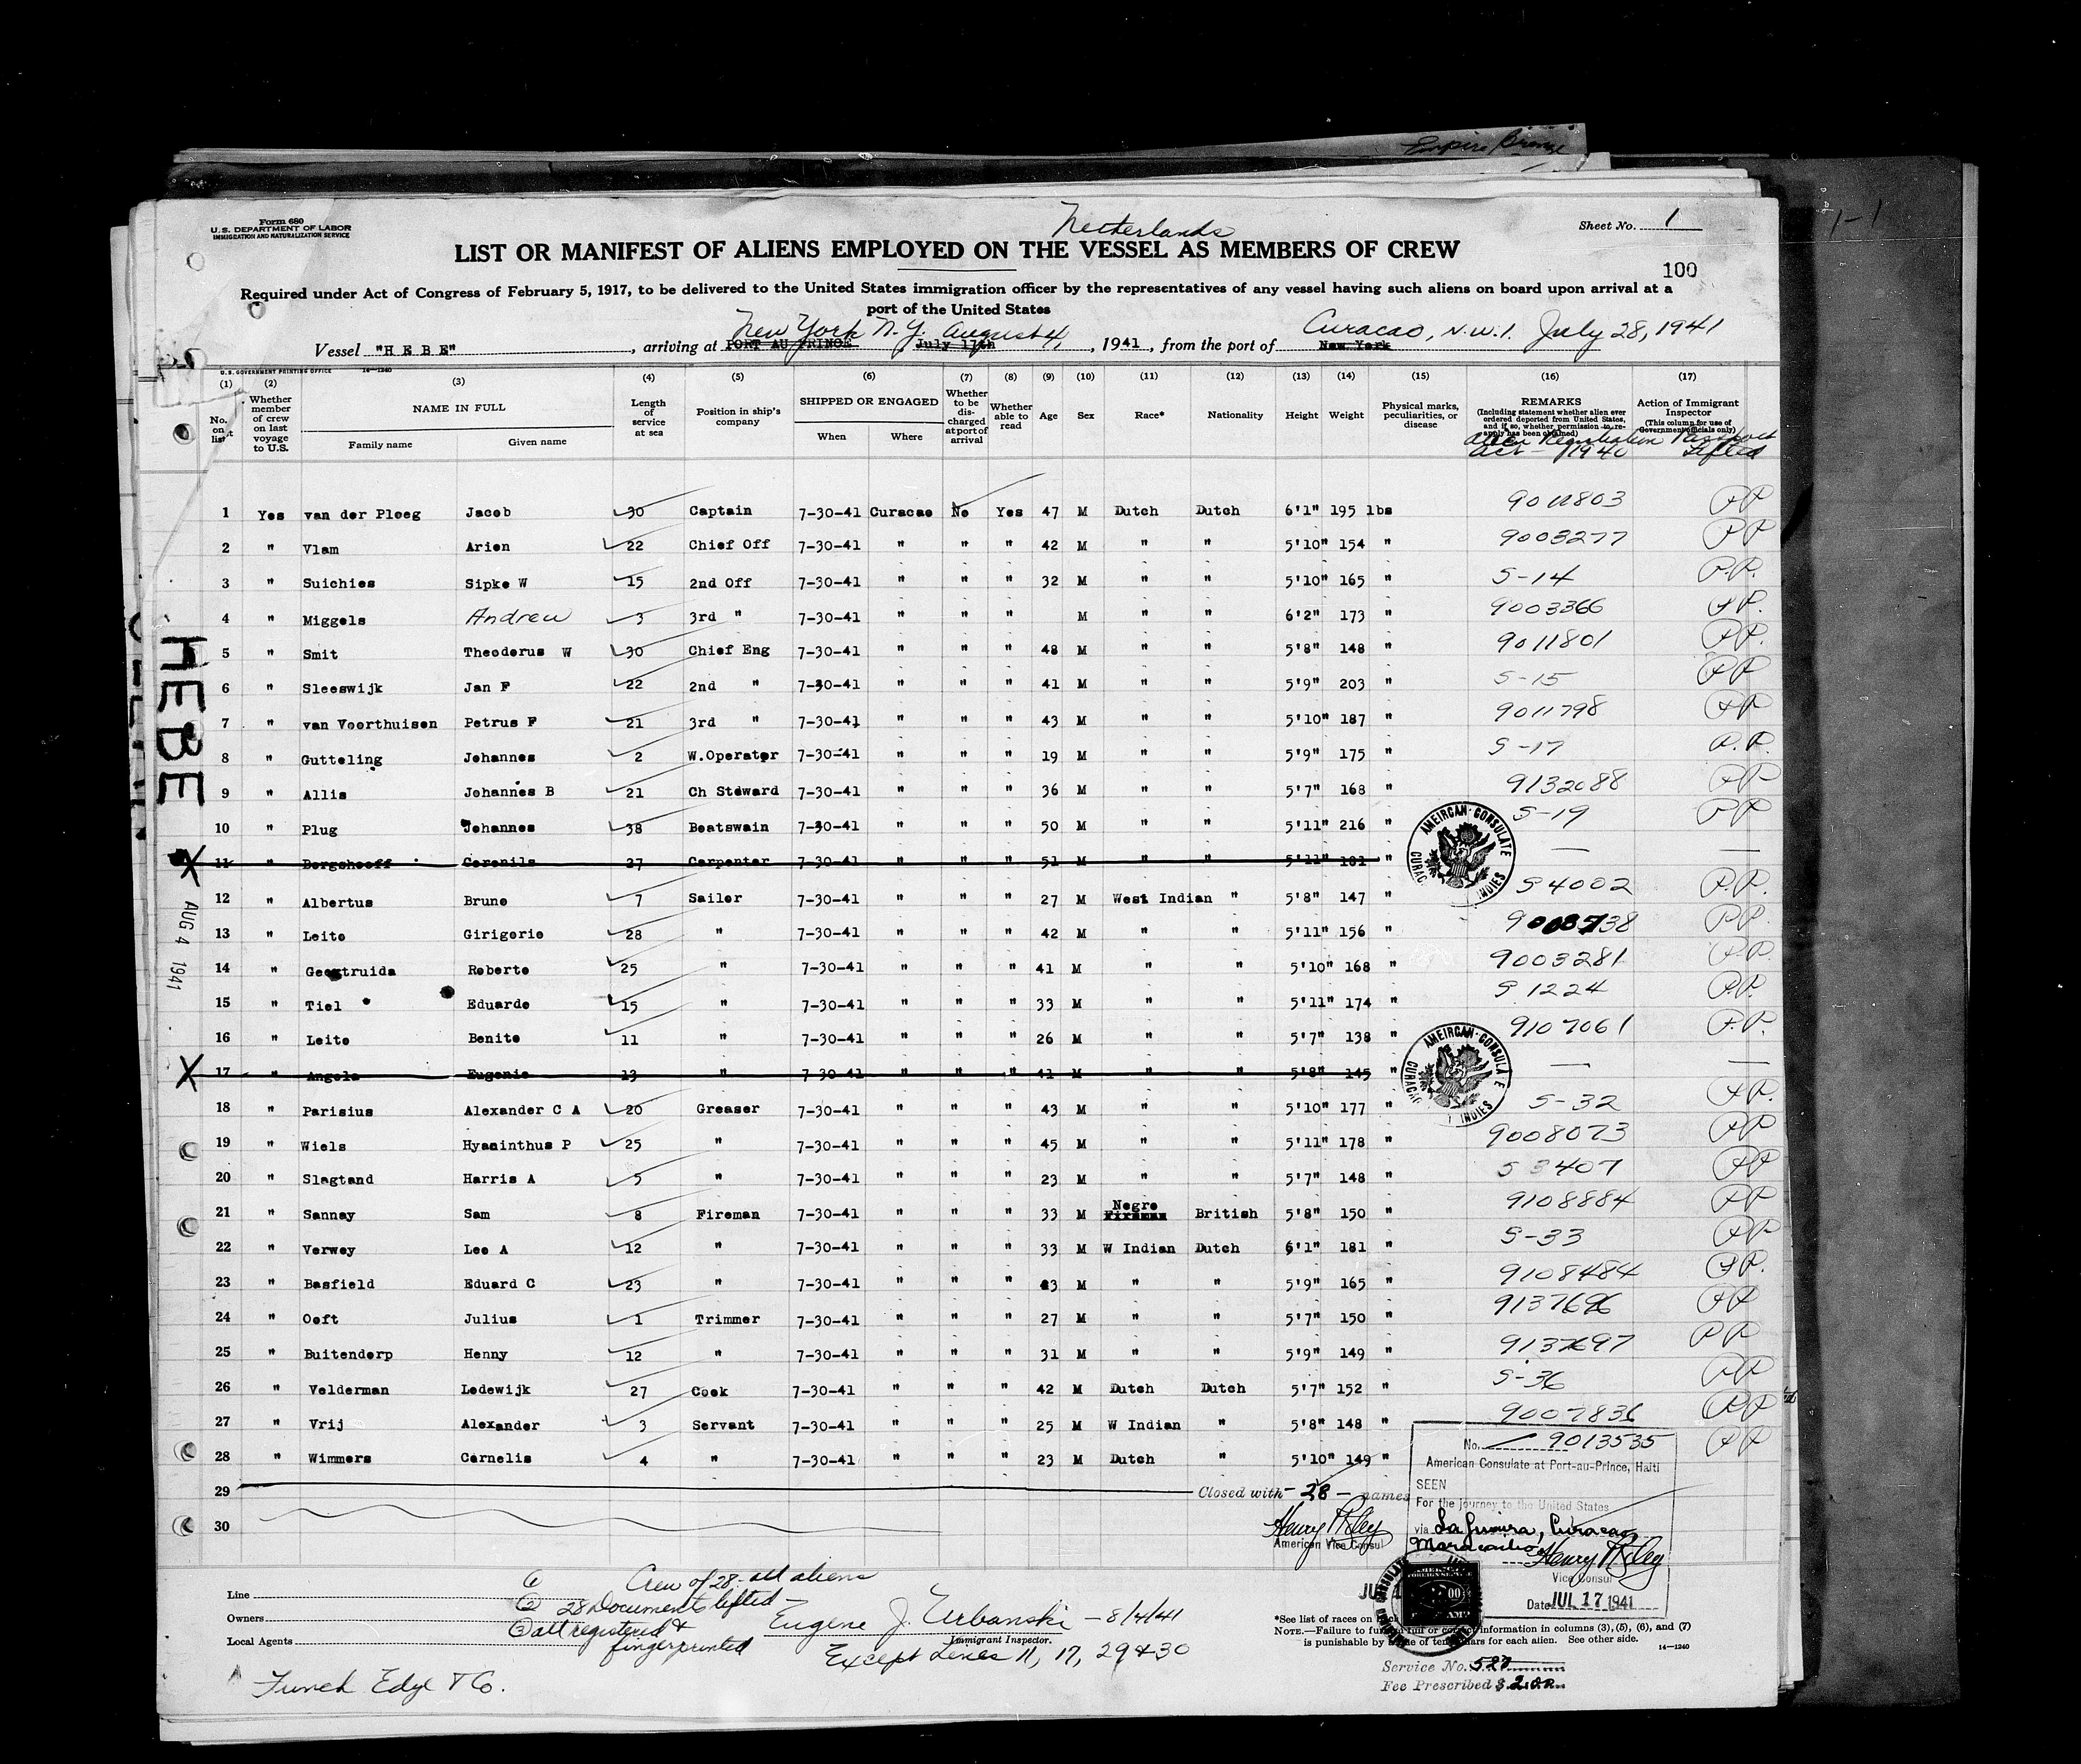 Empire
Form 680
U.S. DEPARTMENT OF LABOR
IMMIGRATION AND NATURALIZATION SERVICE
Netherlands
Sheet No. 1
LIST OR MANIFEST OF ALIENS EMPLOYED ON THE VESSEL AS MEMBERS OF CREW
100
Required under Act of Congress of February 5, 1917, to be delivered to the United States immigration officer by the representatives of any vessel having such aliens on board upon arrival at a
port of the United States
New York N.Y. August 4, Curacao, N.W.I. July 28, 1941
Vessel "H E B E", arriving at PORT AU PRINCE July 17th, 1941, from the port of New York
U.S. GOVERNMENT PRINTING OFFICE 14-1240
(1) (2) (3) (4) (5) (6) (7) (8) (9) (10) (11) (12) (13) (14) (15) (16) (17)
No. on list
Whether member of crew on last voyage to U.S.
NAME IN FULL
Family name Given name
Length of service at sea
Position in ship's company
SHIPPED OR ENGAGED
When Where
Whether to be discharged at port of arrival
Whether able to read
Age Sex Race* Nationality Height Weight
Physical marks, peculiarities, or disease
REMARKS
(Including statement whether alien ever ordered deported from United States, and if so, whether permission to reapply has been obtained)
Action of Immigrant Inspector
(This column for use of Government officials only)
Alien Registration Passport
Act - 1940 Lifted
1 Yes van der Ploeg Jacob 30 Captain 7-30-41 Curacao No Yes 47 M Dutch Dutch 6'1" 195 lbs 9011803 PP
2 " Vlam Arien 22 Chief Off 7-30-41 " " " 42 M " " 5'10" 154 " 9003277 PP
3 " Suichies Sipke W 15 2nd Off 7-30-41 " " " 32 M " " 5'10" 165 " S-14 P.P.
4 " Miggels Andrew 3 3rd " 7-30-41 " " " M " " 6'2" 173 " 9003366 PP.
5 " Smit Theodorus W 30 Chief Eng 7-30-41 " " " 48 M " " 5'8" 148 " 9011801 PP.
6 " Sleeswijk Jan F 22 2nd " 7-30-41 " " " 41 M " " 5'9" 203 " S-15 PP
7 " van Voorthuisen Petrus F 21 3rd " 7-30-41 " " " 43 M " " 5'10" 187 " 9011798 PP
8 " Gutteling Johannes 2 W.Operator 7-30-41 " " " 19 M " " 5'9" 175 " S-17 P.P.
9 " Allis Johannes B 21 Ch Steward 7-30-41 " " " 36 M " " 5'7" 168 " 9132088 PP
10 " Plug Johannes 38 Boatswain 7-30-41 " " " 50 M " " 5'11" 216 " S-19 PP
11 " Borgshooff Cornils 27 Carpenter 7-30-41 " " " 51 M " " 5'11" 181 " — —
12 " Albertus Bruno 7 Sailor 7-30-41 " " " 27 M West Indian " 5'8" 147 " S4002 P.P.
13 " Leito Girigorio 28 " 7-30-41 " " " 42 M " " 5'11" 156 " PP.
14 " Geestruida Roberto 25 " 7-30-41 " " " 41 M " " 5'10" 168 " 9003281 P.P.
15 " Tiel Eduardo 15 " 7-30-41 " " " 33 M " " 5'11" 174 " S 1224 P.P.
16 " Leito Benito 11 " 7-30-41 " " " 26 M " " 5'7" 138 " 9107061 P.P.
17 " Angela Eugenio 13 " 7-30-41 " " " 41 M " " 5'8" 145 " — —
18 " Parisius Alexander C A 20 Greaser 7-30-41 " " " 43 M " " 5'10" 177 " S-32 PP.
19 " Wiels Hyaninthus P 25 " 7-30-41 " " " 45 M " " 5'11" 178 " 9008073 PP
20 " Slagtand Harris A 5 " 7-30-41 " " " 23 M " " 5'7" 148 " S 3407 PP
21 " Sannay Sam 8 Fireman 7-30-41 " " " 33 M Negro Fireman British 5'8" 150 " 9108884 PP
22 " Verwey Leo A 12 " 7-30-41 " " " 33 M W Indian Dutch 6'1" 181 " S-33 PP
23 " Basfield Eduard C 23 " 7-30-41 " " " 43 M " " 5'9" 165 " 9108484 PP.
24 " Ooft Julius 1 Trimmer 7-30-41 " " " 27 M " " 5'7" 150 " 9137696 PP
25 " Buitendorp Henny 12 " 7-30-41 " " " 31 M " " 5'9" 149 " 9137697 PP
26 " Velderman Lodewijk 27 Cook 7-30-41 " " " 42 M Dutch Dutch 5'7" 152 " S-36 PP
27 " Vrij Alexander 3 Servant 7-30-41 " " " 25 M W Indian " 5'8" 148 " 9007836 PP
28 " Wimmers Cornelis 4 " 7-30-41 " " " 23 M Dutch " 5'10" 149 " 9013535 PP
29 Closed with - 28 - names
30
HEBE
AUG 4 1941
AMEIRCAN CONSULATE CURACAO INDIES
AMEIRCAN CONSULATE CURACAO INDIES
Henry Riley
American Vice Consul
No.
American Consulate at Port-au-Prince, Haiti
SEEN
For the journey to the United States
via La Guaira, Curacao,
Maracaibo Henry Riley
Vice Consul
Date JUL 17 1941
Line
Owners
Local Agents
1 Crew of 28 - all aliens
2 28 Documents lifted -
3 all registered &
fingerprinted
Eugene J. Urbanski - 8/4/41
Immigrant Inspector.
Except Lines 11, 17, 29 & 30
Funch Edye & Co.
*See list of races on back
NOTE.—Failure to furnish full or correct information in columns (3), (5), (6), and (7)
is punishable by fine of ten dollars for each alien. See other side.
14-1240
Service No. 527
Fee Prescribed $ 2.00